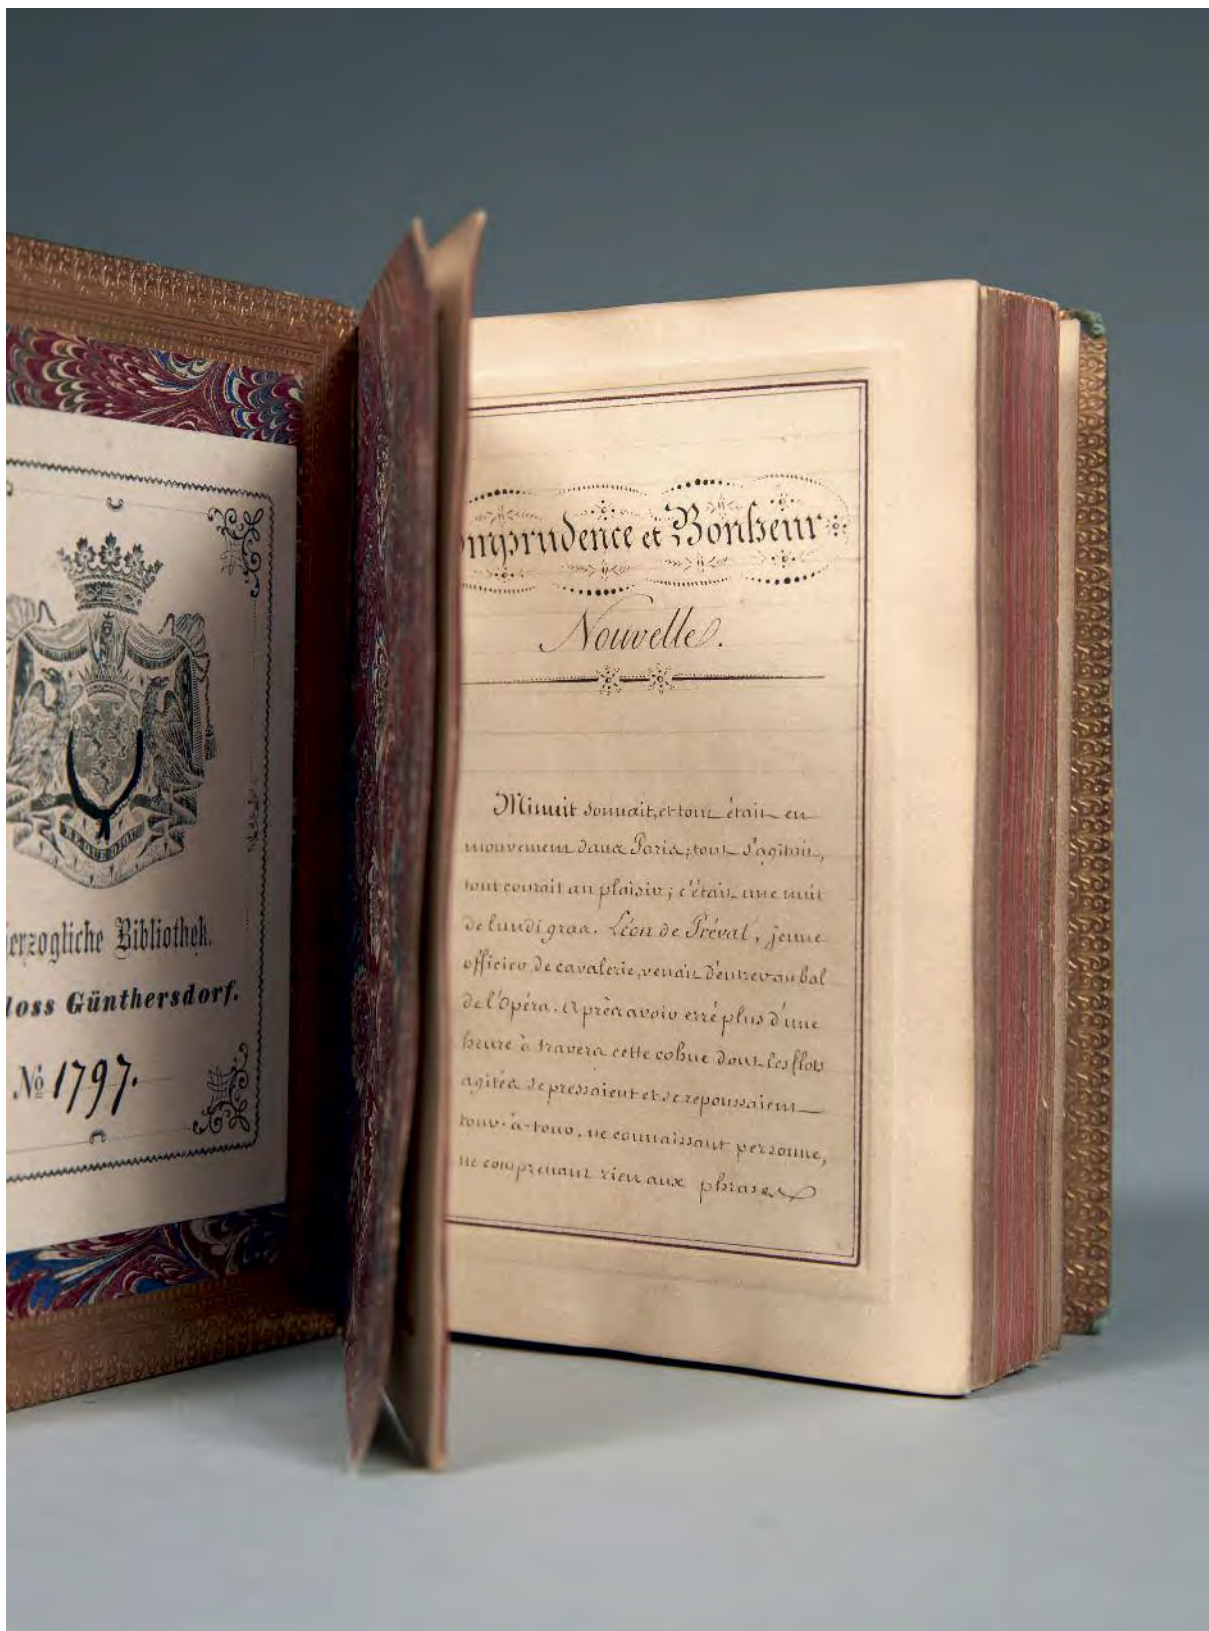 AEQUE DIOU
erzogliche Bibliothek.
loss Günthersdorf.
No 1797.
mprudence et Bonheur
Nouvelle.
Minuit sonnait, et tout était en
mouvement dans Paris; tout s'agitait,
tout courait au plaisir; c'était une nuit
de lundi gras. Léon de Préval, jeune
officier de cavalerie, venait d'entrer au bal
de l'Opéra. Après avoir erré plus d'une
heure à travers cette cohue dont les flots
agités se pressaient et se repoussaient
tour-à-tour, ne connaissant personne,
ne comprenant rien aux phrases